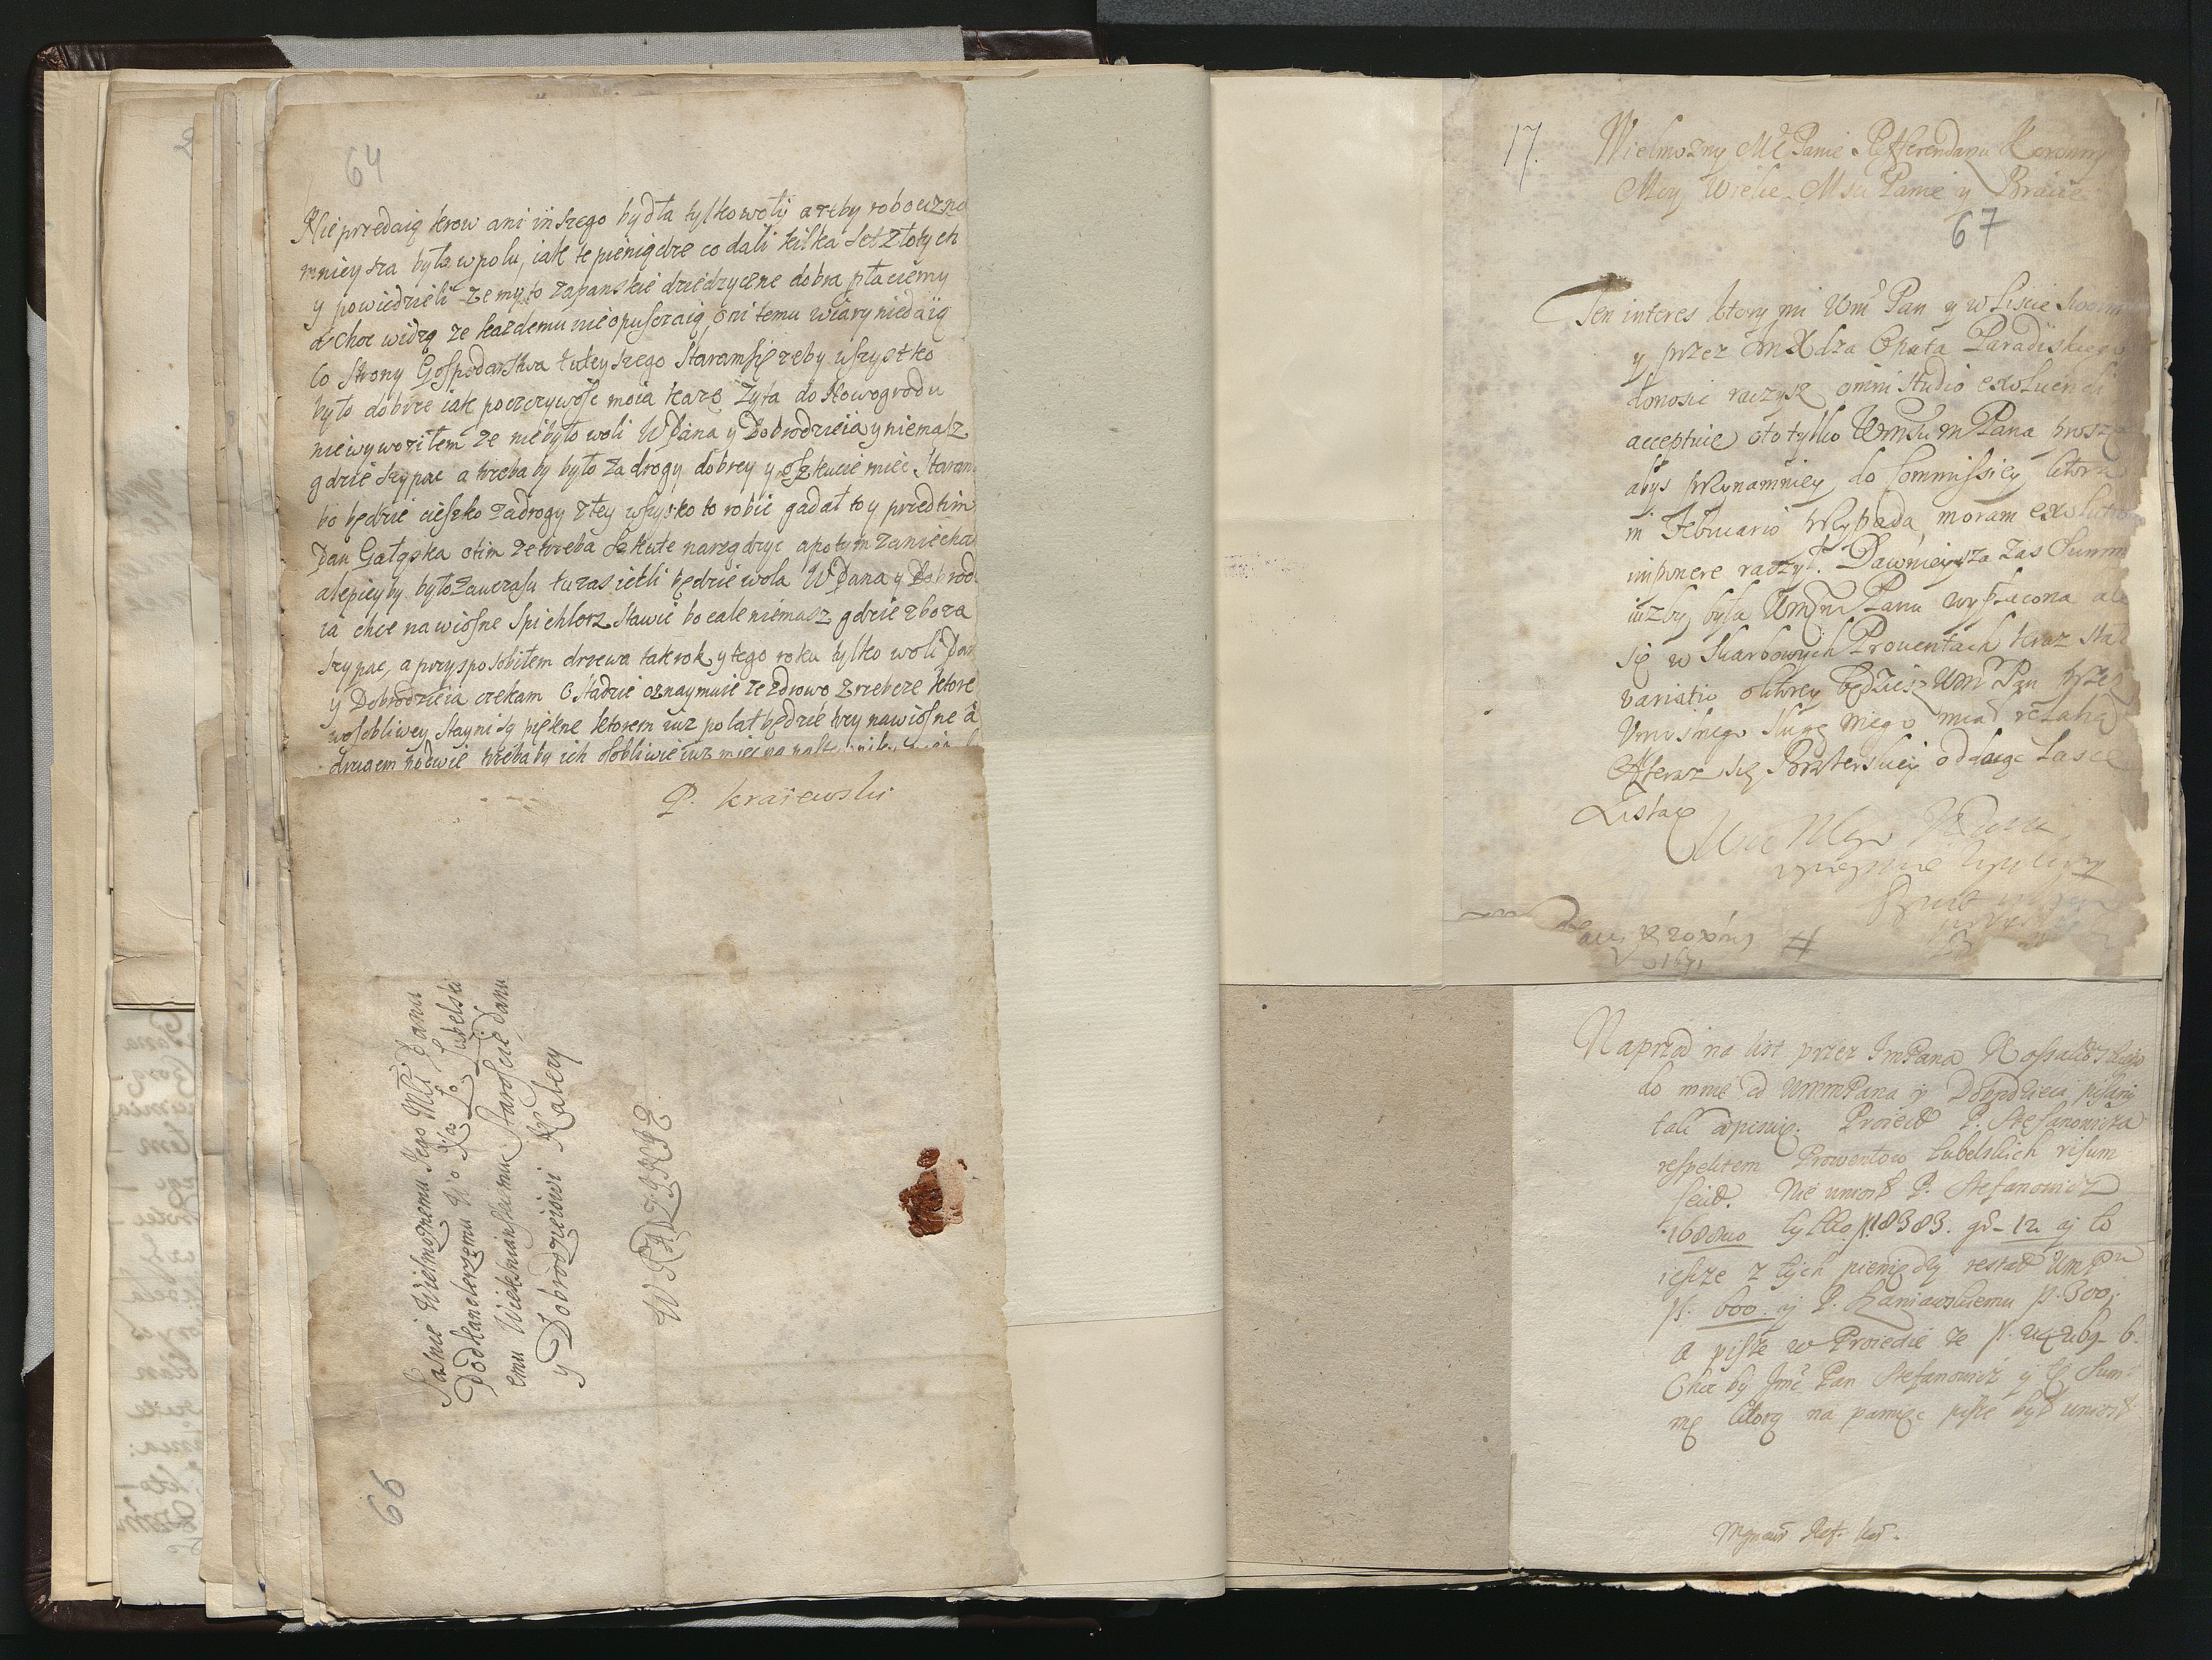 64
Nie przedaią krow ani inszego bydła tylko woły a żeby robocizna
mnieysza była w polu, iak te pieniądze co dali kilka set złotych
y powiedzieli że my to za panskie dziedzyczne dobra płaciemy
a choc widzą ze kazdemu nie opuszczaią, oni temu wiary niedaią
Co Strony Gospodarstwa tuteyszego Staram się zeby wszystko
było dobrze iak poczciwość moia każe Zyta do Nowogrodu
nie wywoziłem ze niebyło woli WPana y Dobrodzieia y niemasz
gdzie sypac a trzeba by było za drogy dobrey y o szkucie miec Staran
bo będzie cieszko za drogy złey wszysko to robic gadał to y przed tim
Pan Gałąska o tim ze trzeba Szkute narządzyc a potym zaniechał
a lepiey by było zawczasu tu zas iezli będzie wola WPana y Dobrod
ia chce na wiosne Spichlerz Stawic bo cale niemasz gdzie zboza
szypac, a przysposobiłem drzewa tak rok y tego roku tylko woli Pan
y Dobrodzieia czekam O Stadzie oznaymuie ze zdrowo zrzebcze ktore
w osobliwey Stayni są piękne ktorem iuz po lat będzie trzy na wiosne a
P. Kraiewski
Jasnie Wielmoznemu Jego Mści Panu
Podkanclerzemu W° Xa L°, Lubelski
emu Wiekszniańskiemu Staroscie Panu
y Dobrodzieiowi
66
17.
Wielmozny Mć Panie Refferendarzu Koronny
Moy Wielce Mści Panie y Bracie
67
Ten interes ktory mi Wm Pan y w liscie swoim
y przez Jm Xdza Opata Paradiskiego
donosic raczysz omni studio exoluendi
acceptuie oto tylko Wmsci m Pana prosze
abys przynamniey do Commissiey ktora
in Februario przypada moram exolution
imponere raczył. Dawnieysza zas Summ
iuzby była Wmsci Panu wypłacona ale
się w Skarbowych Prouentach teraz stał
variatio o ktorey będziesz Wm Pan przez
umyslnego sługę mego miał relatią
A teraz się Braterskiey oddaię Łasce
Zostaę
1671
Naprzod na list przez Jm Pana
do mnie od Wmm Pana y Dobrodzieia pisany
tali odpisuię. Proiect P. Stefanowicza
respektem Prowentow Lubelskich risum
fecit. Nie uniosł P. Stefanowicz
tylko fl. 8383. gr. 12 ij to
iescze z tych pieniędzy restat Wm Pnu
fl. 600. ij P. Kaniawskiemu fl. 300.
A pisze w Proiecie ze fl.
Chce by Jmć Pan Stefanowicz y tę Sum-
mę ktorą na pamięc pisze był uniosł